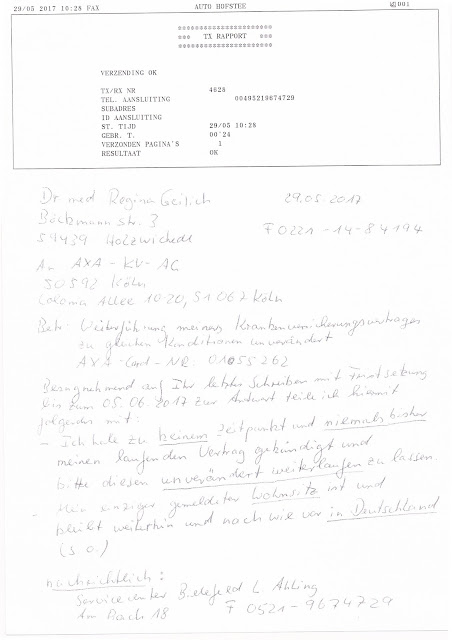 29/05 2017 10:28 FAX AUTO HOFSTEE 001
************************
*** TX RAPPORT ***
************************
VERZENDING OK
TX/RX NR 4628
TEL. AANSLUITING 00495219674729
SUBADRES
ID AANSLUITING
ST. TIJD 29/05 10:28
GEBR. T. 00'24
VERZONDEN PAGINA'S 1
RESULTAAT OK
Dr med Regina 29.05.2017
Str. 3 F 0221-14-84194
59439 Holzwickede
An AXA-KV-AG
50592 Köln
Colonia Allee 10-20, 51067 Köln
Betr: Weiterführung meines Krankenversicherungsvertrages
zu gleichen Konditionen unverändert
AXA-Card-NR: 01055262
Bezugnehmend auf Ihr letztes Schreiben mit Fristsetzung
bis zum 05.06.2017 zur Antwort teile ich hiermit
folgendes mit:
- Ich habe zu keinem Zeitpunkt und niemals bisher
meinen laufenden Vertrag gekündigt und
bitte diesen unverändert weiterlaufen zu lassen.
- Mein einziger gemeldeter Wohnsitz ist und
bleibt weiterhin und nach wie vor in Deutschland
(s o.)
nachrichtlich:
Servicecenter Bielefeld
Am Bach 18 F 0521-9674729